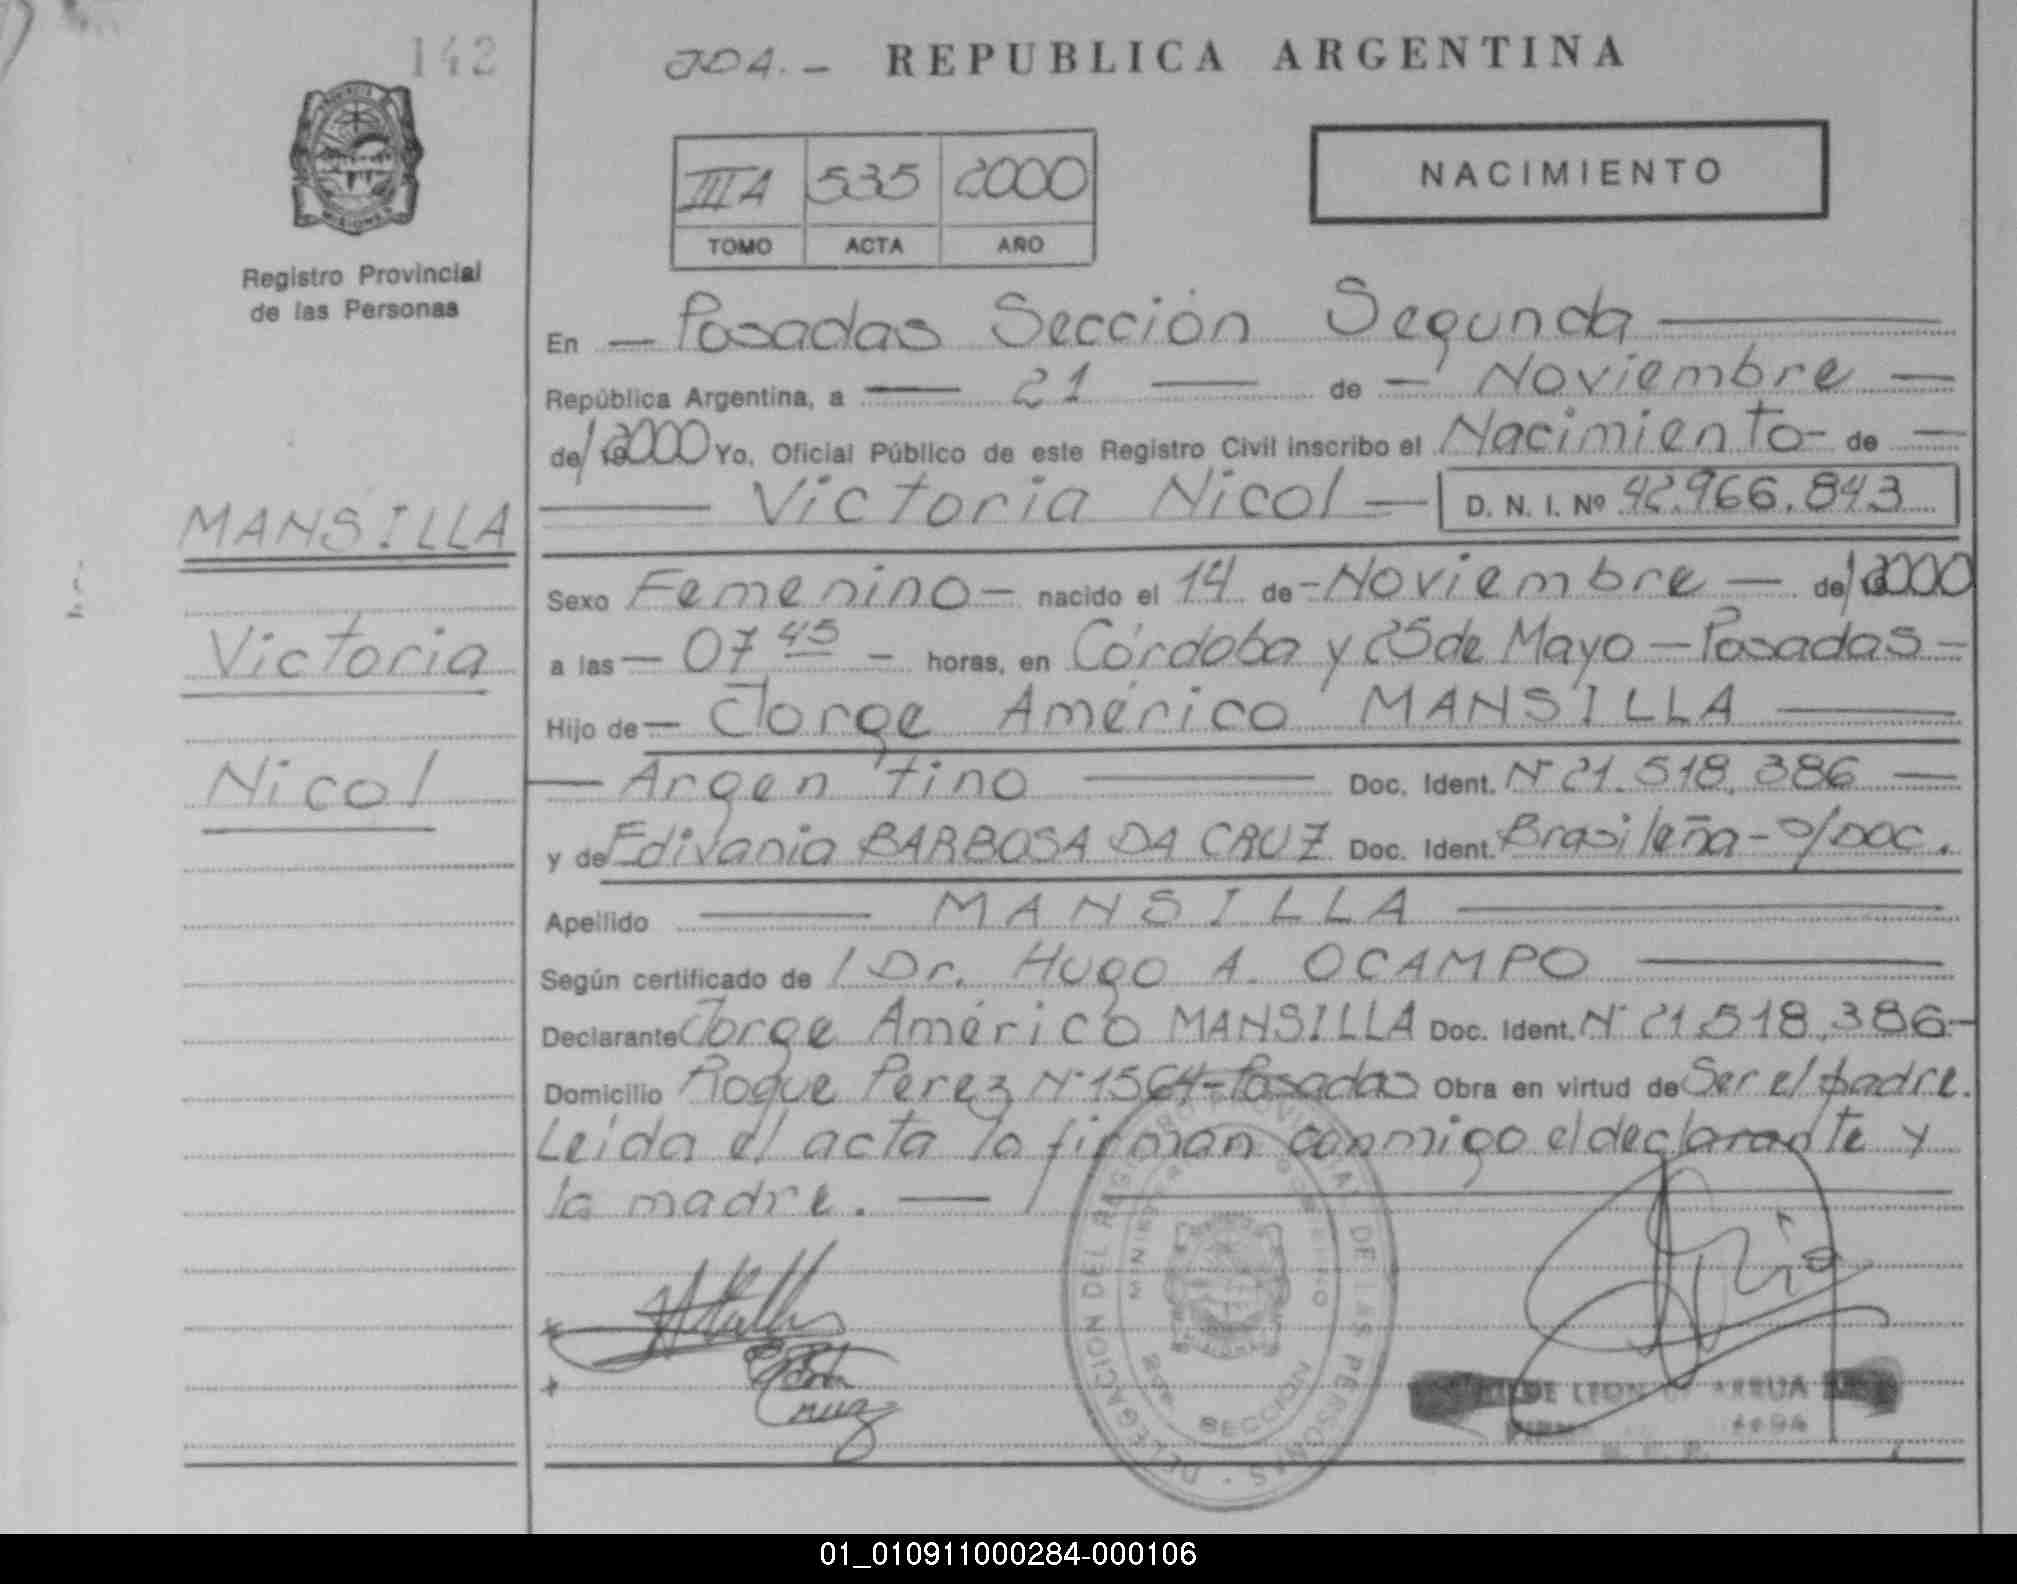 142
204.- REPUBLICA ARGENTINA
NACIMIENTO
III A 535 2000
TOMO ACTA AÑO
PROVINCIA
MISIONES
Registro Provincial
de las Personas
En — Posadas Sección Segunda —
República Argentina, a — 21 — de — Noviembre —
de 2000 Yo, Oficial Público de este Registro Civil inscribo el Nacimiento- de —
— Victoria Nicol — D. N. I. Nº 42.966.843
MANSILLA
Victoria
Nicol
Sexo Femenino — nacido el 14 de - Noviembre — de 2000
a las — 07 45 — horas, en Córdoba y 25 de Mayo — Posadas —
Hijo de — Jorge Américo MANSILLA —
— Argentino — Doc. Ident. Nº 21.518.386 —
y de Edivania BARBOSA DA CRUZ Doc. Ident. Brasileña - s/DOC.
Apellido — MANSILLA —
Según certificado de / Dr. Hugo A. OCAMPO —
Declarante Jorge Américo MANSILLA Doc. Ident. Nº 21.518.386 -
Domicilio Roque Perez Nº 1564 - Posadas Obra en virtud de Ser el padre.
Leída el acta la firman conmigo el declarante y
la madre. —
DELEGACION DEL REGISTRO PROVINCIAL DE LAS PERSONAS
SECCION
Cruz
DE LEON ARRUA
01_010911000284-000106